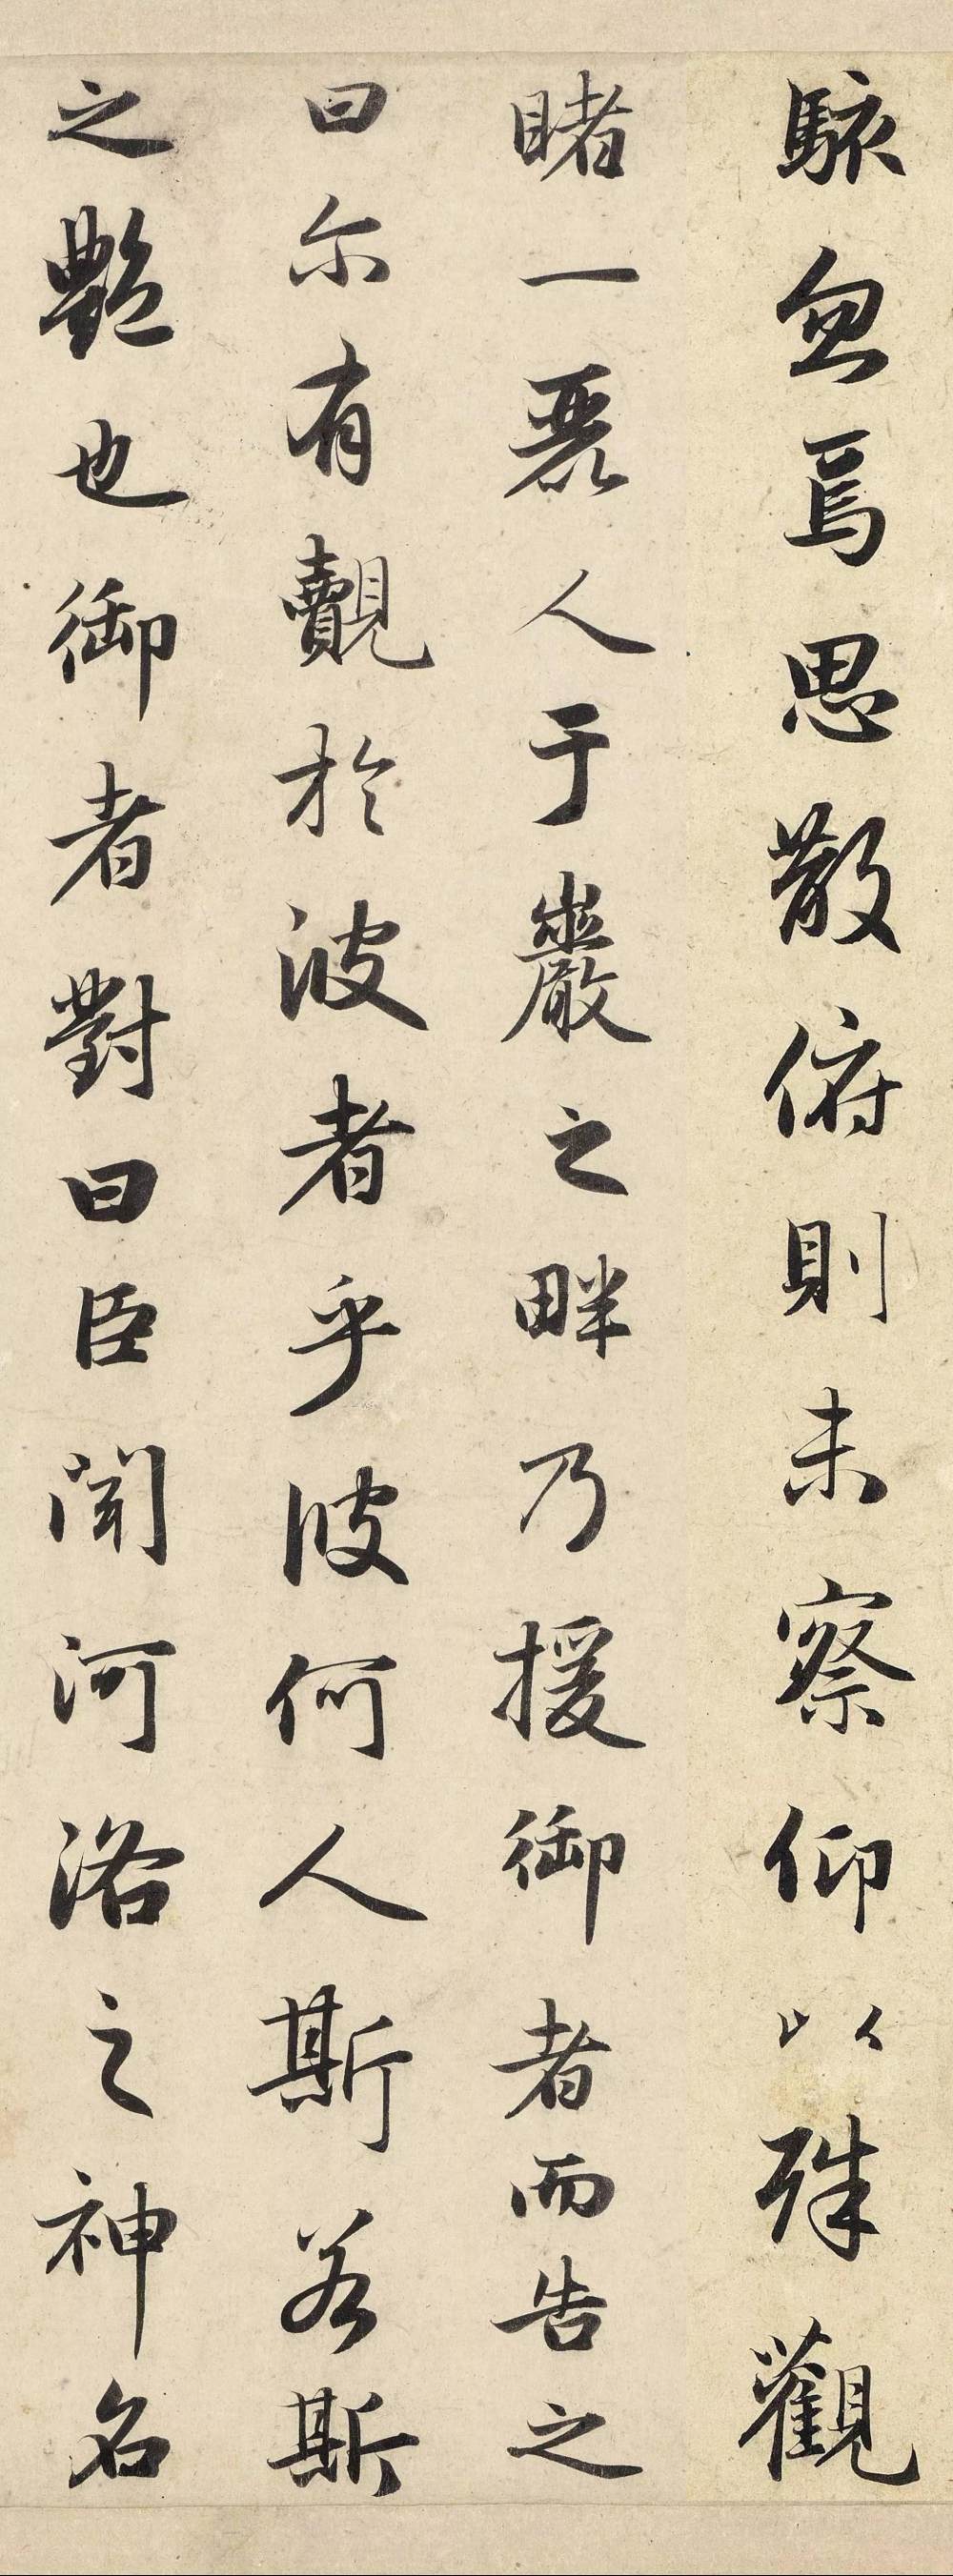 駭忽焉思散俯則未察仰以殊觀
睹一麗人于巖之畔乃援御者而告之
曰尓有覿於波者乎彼何人斯若斯
之豔也御者對曰臣聞河洛之神名